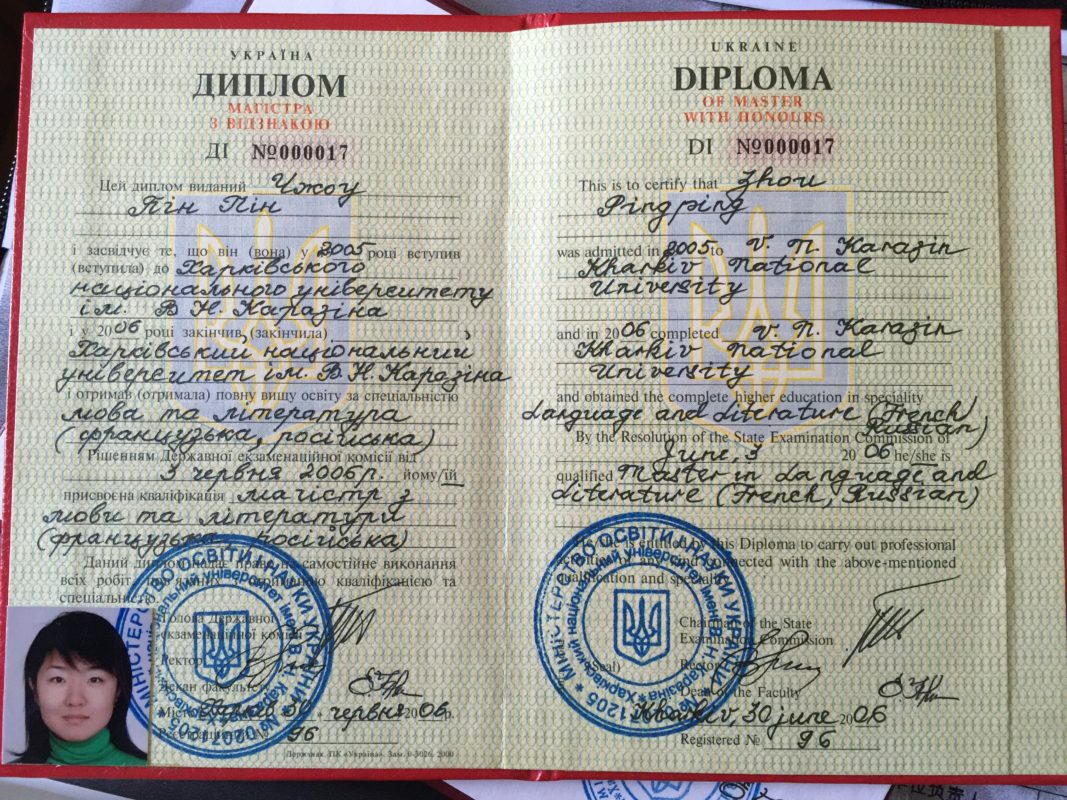 УКРАЇНА
ДИПЛОМ
МАГІСТРА
З ВІДЗНАКОЮ
ДІ №000017
Цей диплом виданий Чжоу
Пін Пін
і засвідчує те, що він (вона) у 2005 році вступив
(вступила) до Харківського
національного університету
ім. В Н. Каразіна
і у 2006 році закінчив (закінчила)
Харківський національний
університет ім. В Н. Каразіна
і отримав (отримала) повну вищу освіту за спеціальністю
мова та література
(французька, російська)
Рішенням Державної екзаменаційної комісії від
3 червня 2006 р. йому/їй
присвоєна кваліфікація магістр з
мови та літератури
(французька російська)
Даний диплом надає право на самостійне виконання
всіх робіт кваліфікацією та
спеціальністю.
Голова Державної
екзаменаційної комісії
Ректор
Декан факультету
Місто Харків 30 червня 2006 р.
№ 96
Держзнак. ПК «Україна». Зам. 6-3026. 2000
UKRAINE
DIPLOMA
OF MASTER
WITH HONOURS
DI №000017
This is to certify that Zhou
Pingping
was admitted in 2005 to V. N. Karazin
Kharkiv National
University
and in 2006 completed V. N. Karazin
Kharkiv National
University
and obtained the complete higher education in speciality
Language and Literature (French,
Russian)
By the Resolution of the State Examination Commission of
June, 3 2006 he/she is
qualified Master in Language and
Literature (French, Russian)
He/she is entitled by this Diploma to carry out professional
connected with the above-mentioned
qualification and speciality
Chairman of the State
Examination Commission
(Seal)
Rector
Dean of the Faculty
Kharkiv, 30 june 2006
Registered № 96
МІНІСТЕРСТВО ОСВІТИ І НАУКИ УКРАЇНИ
Харківський національний університет імені В. Н. Каразіна